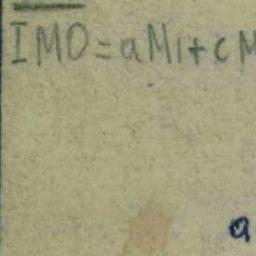 IMO = a M1 + c M
a